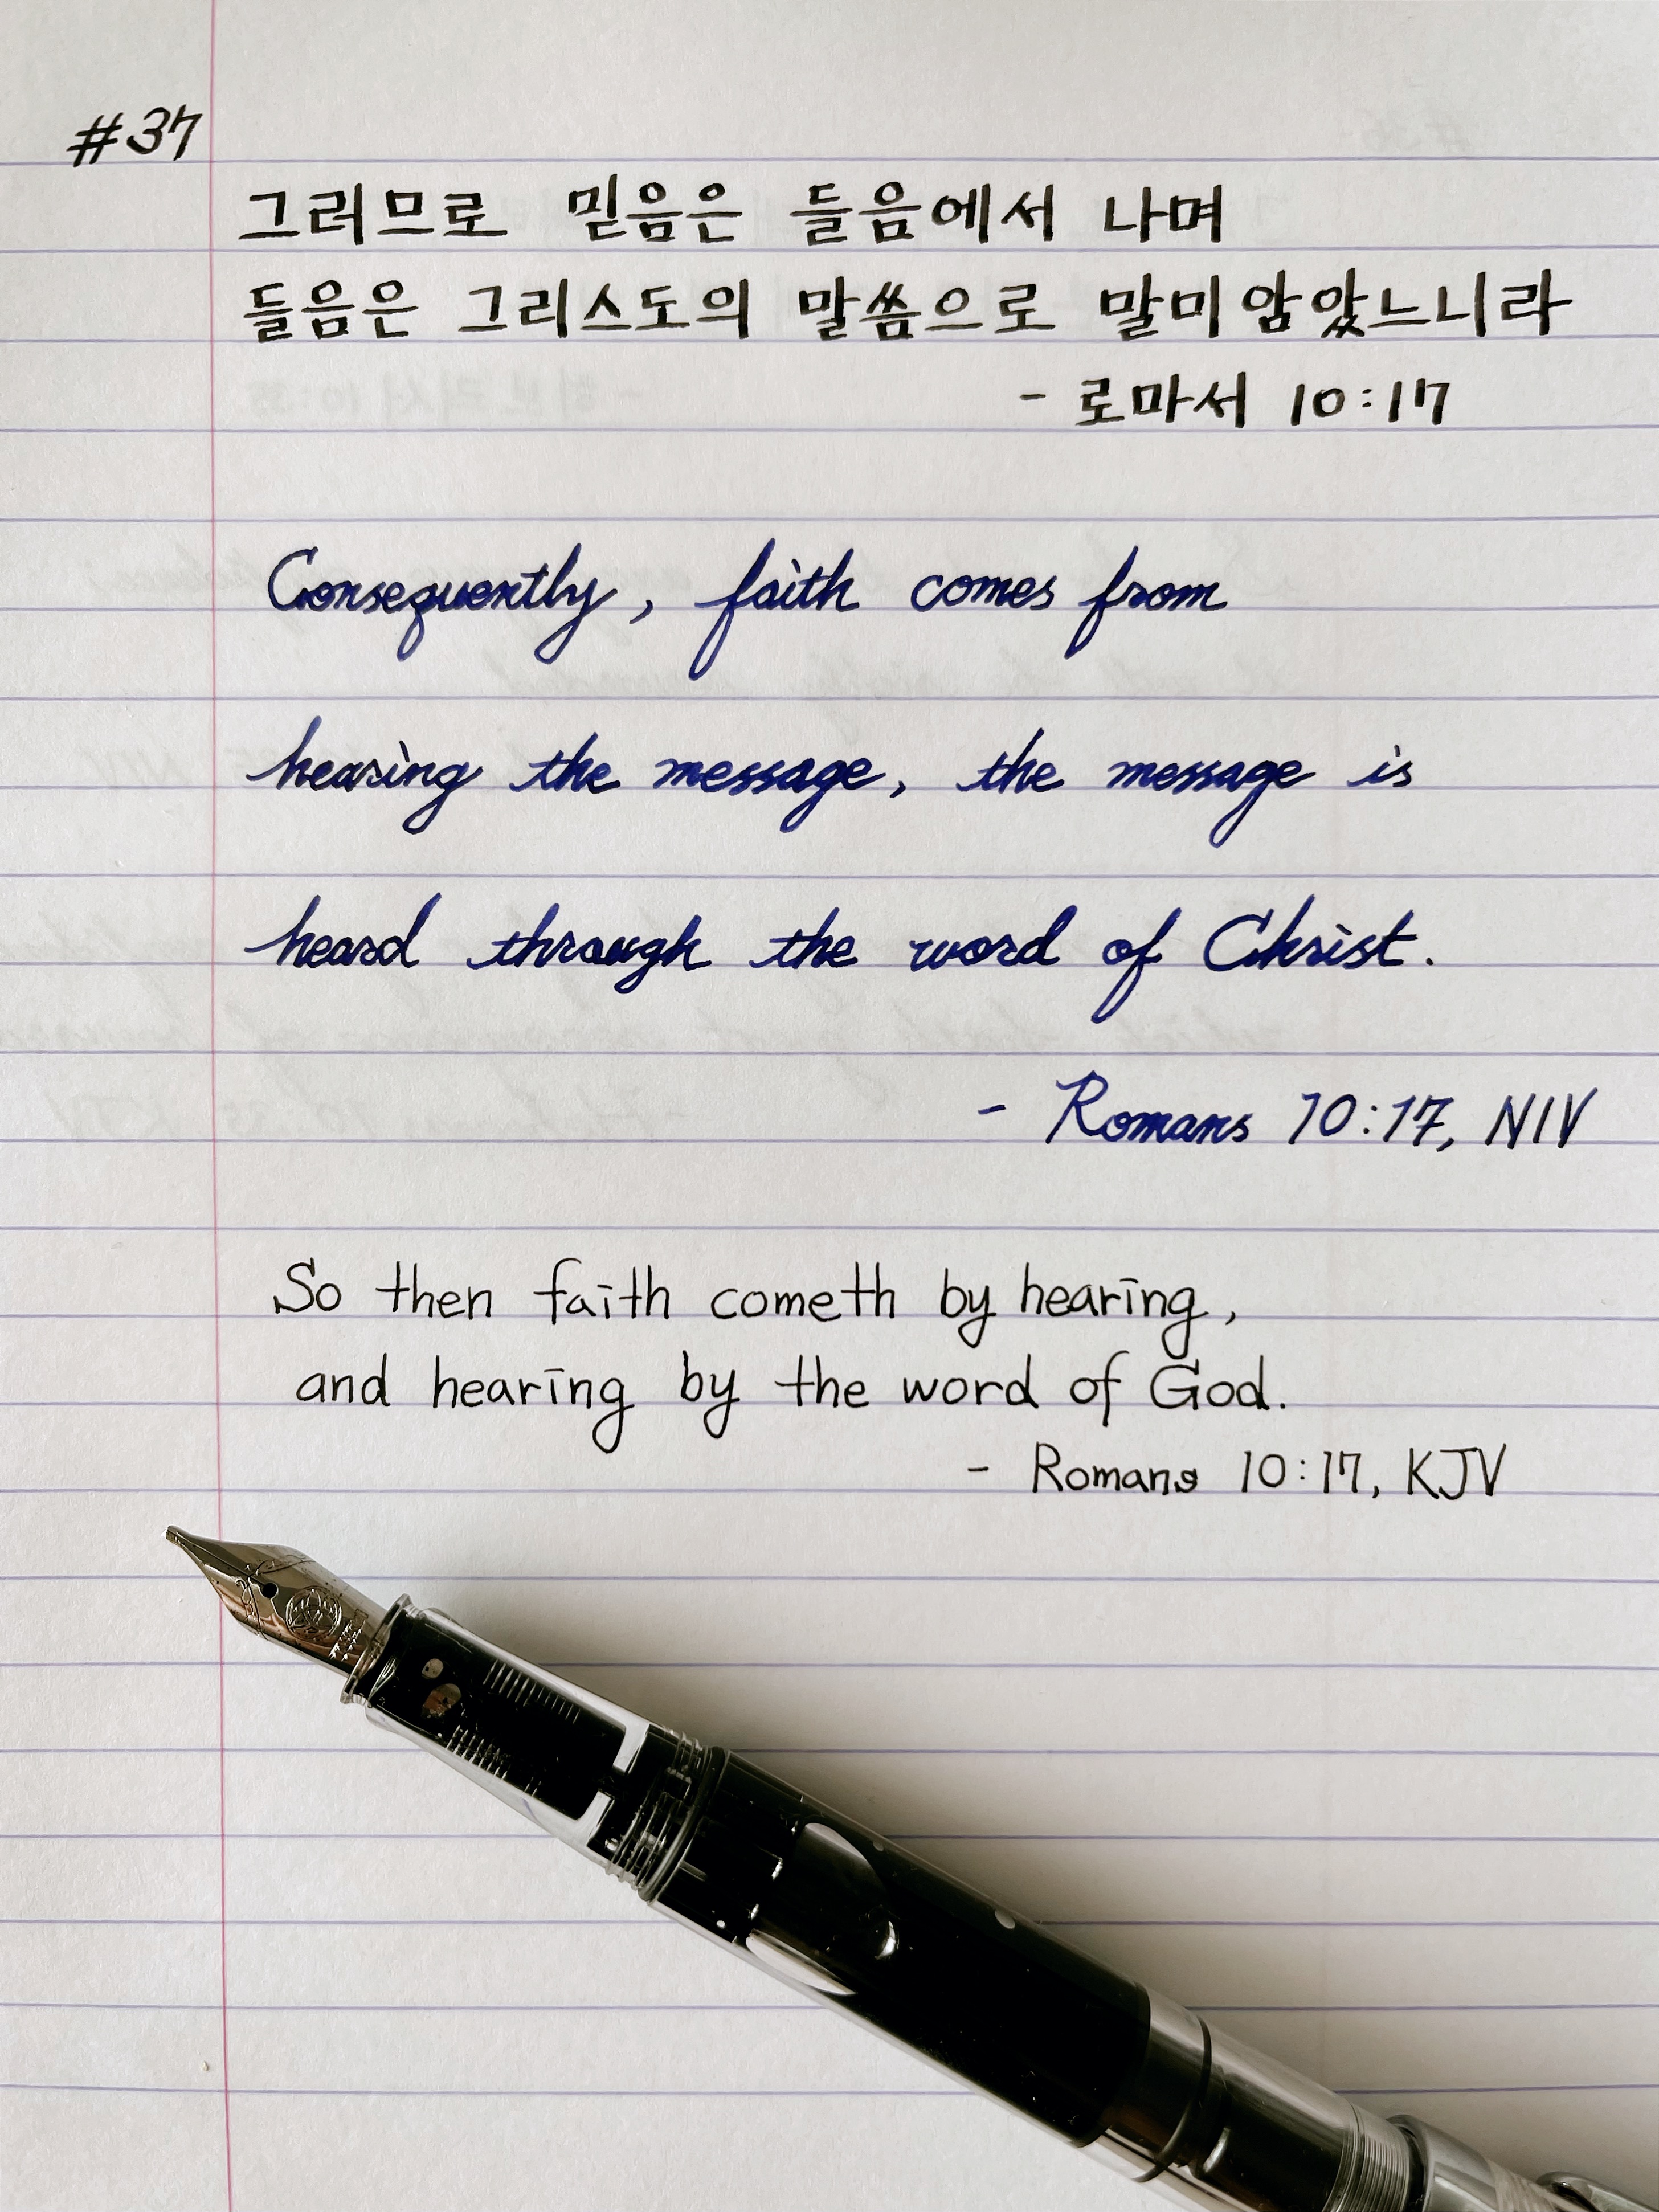 #37
그러므로 믿음은 들음에서 나며
들음은 그리스도의 말씀으로 말미암았느니라
- 로마서 10:17
Consequently, faith comes from
hearing the message, the message is
heard through the word of Christ.
- Romans 10:17, NIV
So then faith cometh by hearing,
and hearing by the word of God.
- Romans 10:17, KJV